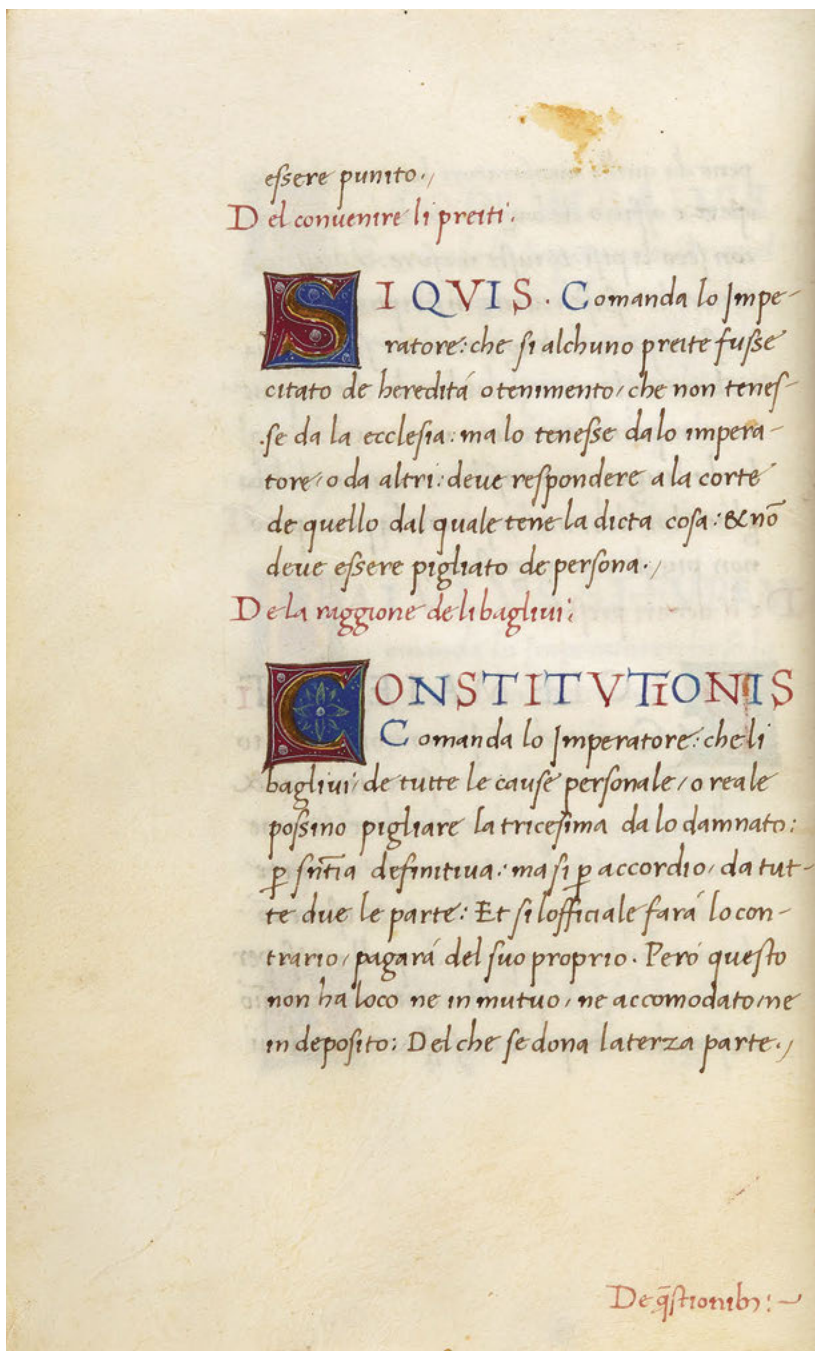 essere punito./
Del convenire li preiti.
SI QVIS. Comanda lo Impe-
ratore: che si alchuno preite fusse
citato de hereditá o tenimento/ che non tenes-
se da la ecclesia: ma lo tenesse da lo impera-
tore/ o da altri: deve respondere a la corte
de quello dal quale tene la dicta cosa: & nō
deve essere pigliato de persona./
De la raggione de li baglivi:
CONSTITVTIONIS
Comanda lo Imperatore: che li
baglivi/ de tutte le cause personale/ o reale
possino pigliare la tricesima da lo damnato:
ꝑ sñtia definitiva: ma si ꝑ accordio/ da tut-
te due le parte: Et si lofficiale fará lo con-
trario/ pagará del suo proprio. Peró questo
non ha loco ne in mutuo/ ne accomodato/ ne
in deposito: Del che se dona la terza parte./
De q̄stionibꝫ:~